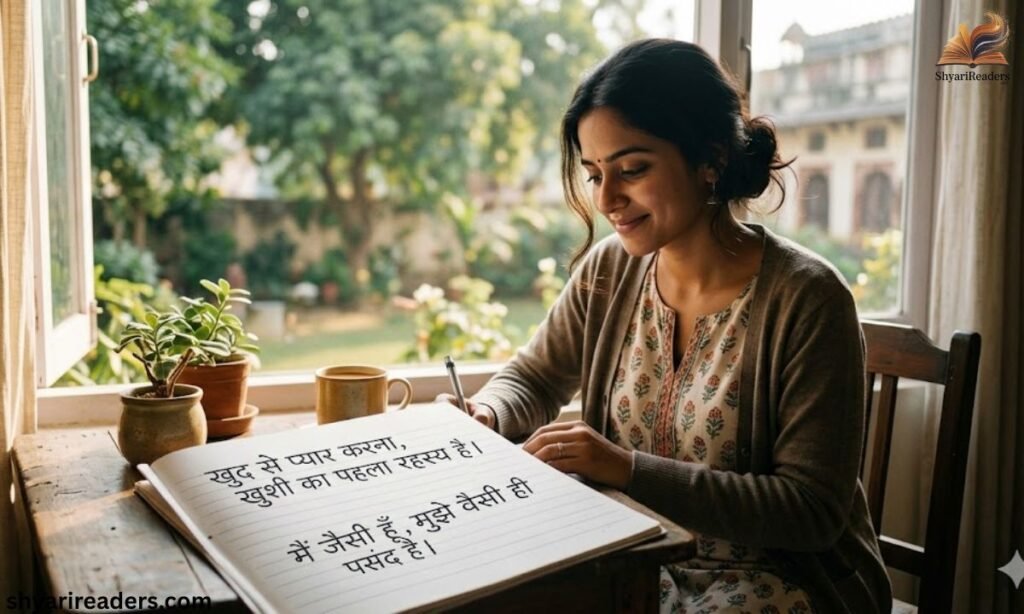 ShyariReaders
खुद से प्यार करना,
खुशी का पहला रहस्य है।
मैं जैसी हूँ, मुझे वैसी ही
पसंद है।
shyarireaders.com